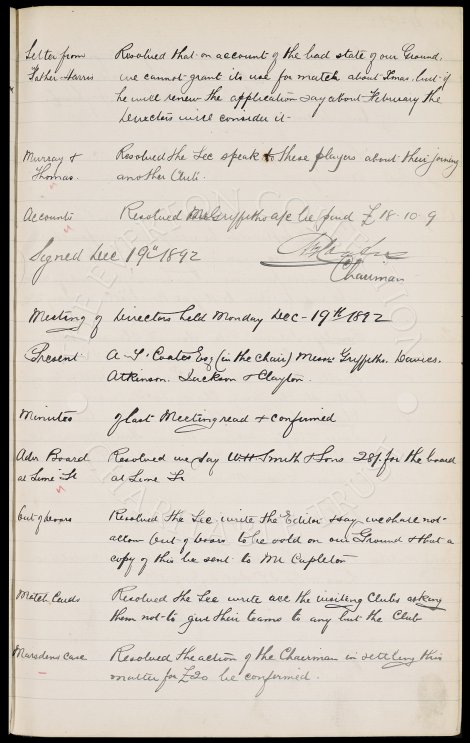 Letter from Resolved that on account of the bad state of our Ground,
Father Harris we cannot grant its use for match about Xmas, but if
he will renew the application say about February the
Directors will consider it -
Murray & Resolved the Sec speak to these players about their joining
Thomas. another Club.
Accounts Resolved Griffiths a/c be paid £18-10-9
Signed Dec 19th 1892
Chairman
Meeting of Directors held Monday Dec - 19th 1892
Present A. T. Coates Esq (in the chair) Messrs Griffiths, Davies,
Atkinson, Jackson & Clayton.
Minutes of last Meeting read & confirmed
Adv Board Resolved we pay WH Smith & Sons 28/- for the board
at Lime St at Lime St
Out of doors Resolved the Sec write the Editor & say we shall not
allow Out of doors to be sold on our Ground & that a
copy of this be sent to Mr Cupleton
Match Cards Resolved the Sec write all the visiting Clubs asking
them not to give their teams to any but the Club
Marsdens Case Resolved the action of the Chairman in settling this
matter for £20 be confirmed.